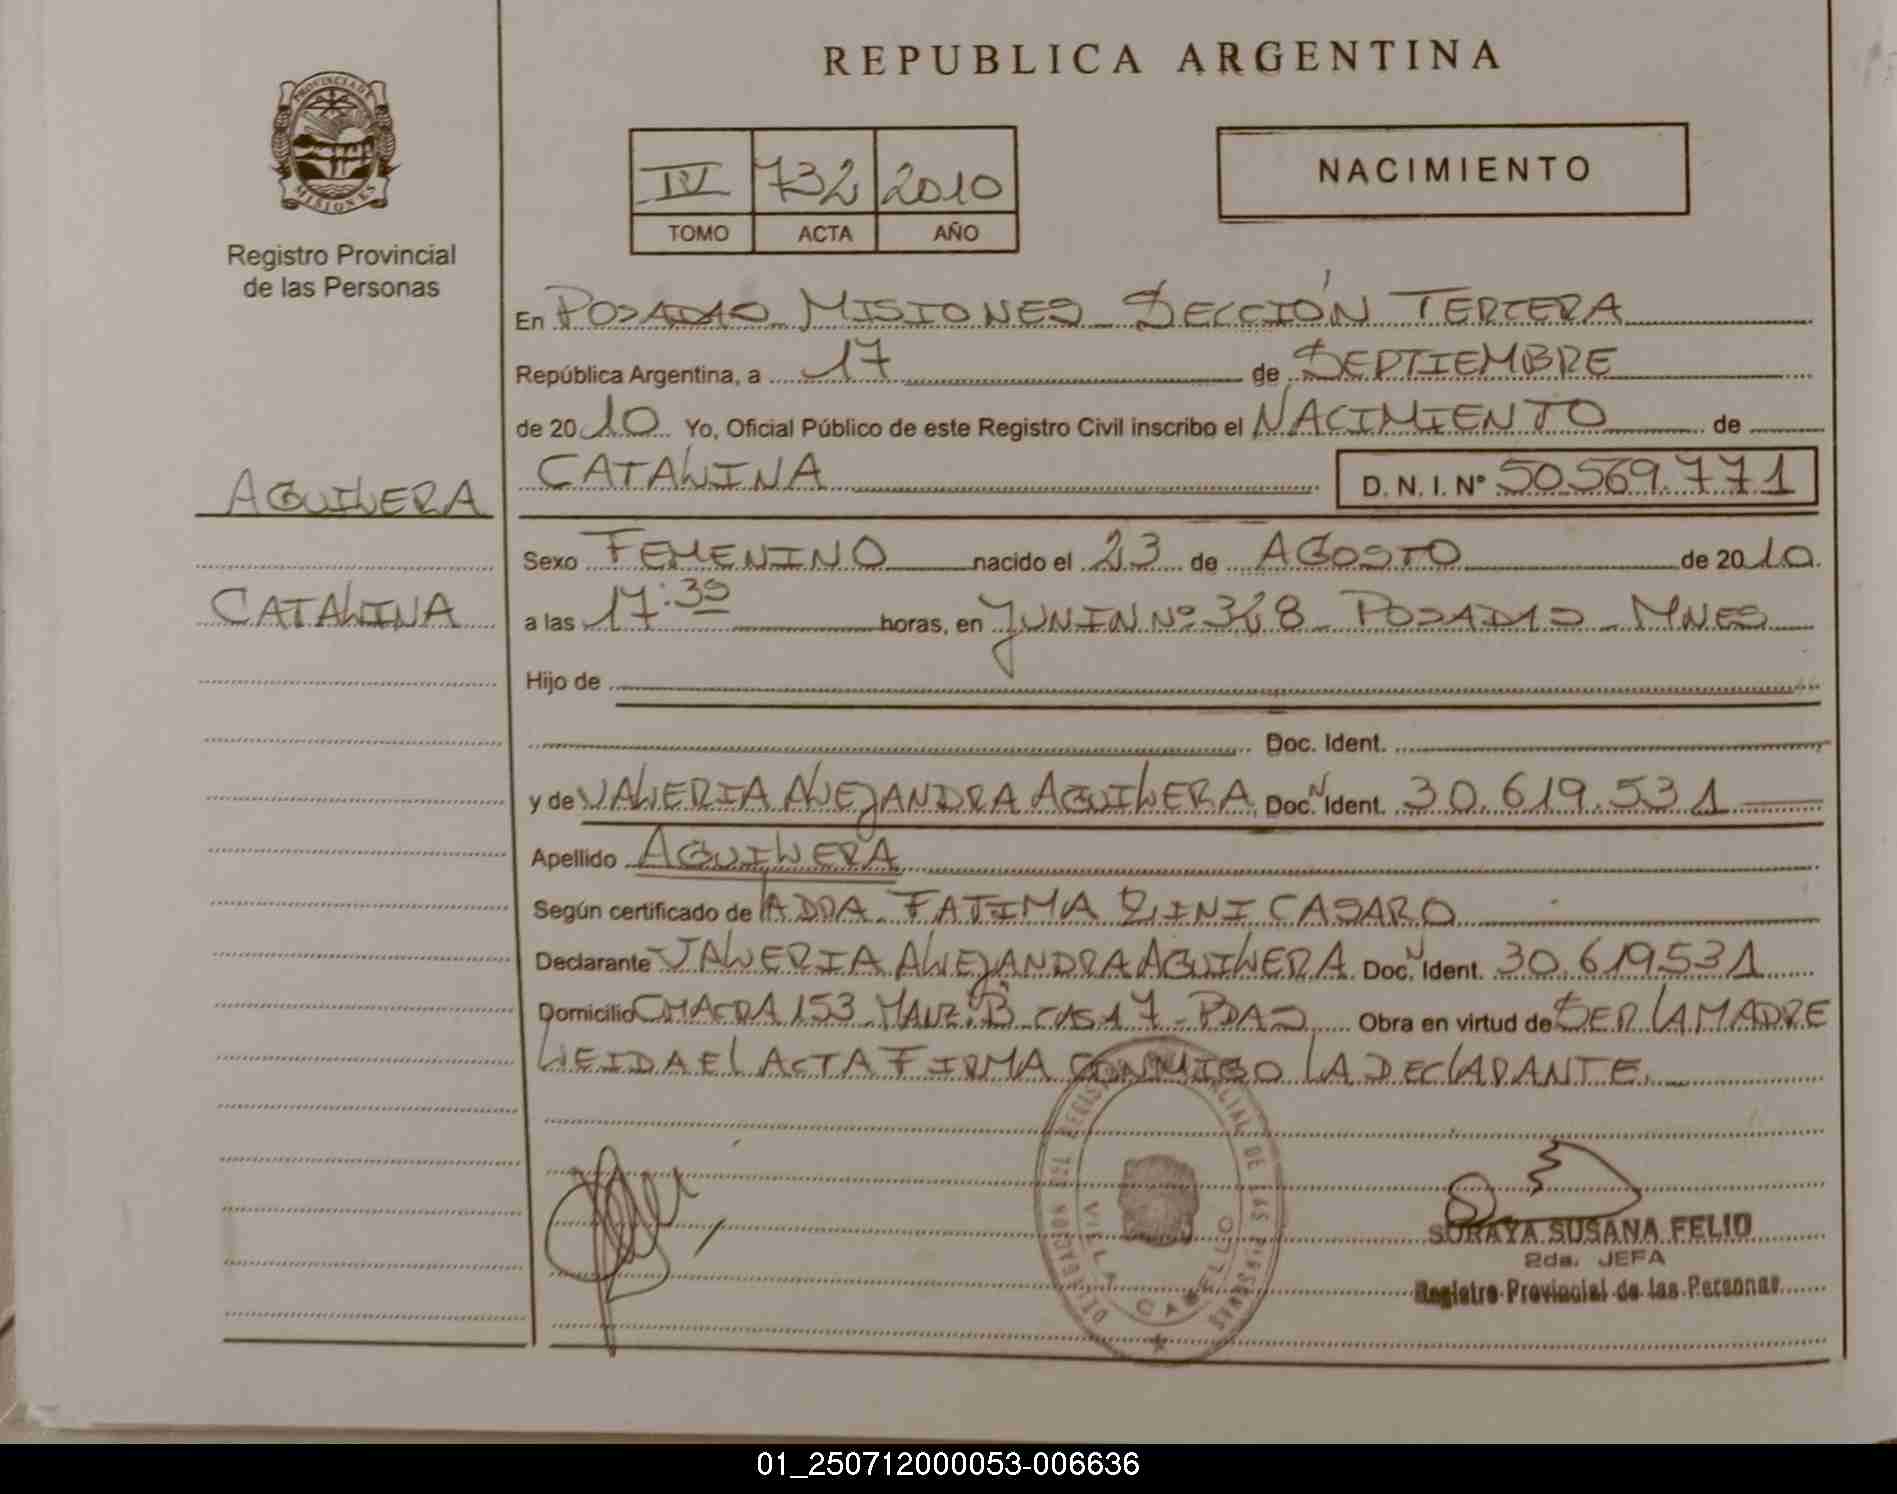 REPUBLICA ARGENTINA
PROVINCIA DE MISIONES
Registro Provincial
de las Personas
IV 732 2010
TOMO ACTA AÑO
NACIMIENTO
En POSADAS MISIONES SECCIÓN TERCERA
República Argentina, a 17 de SEPTIEMBRE
de 2010 Yo, Oficial Público de este Registro Civil inscribo el NACIMIENTO de
AGUILERA
CATALINA D.N.I. N° 50.569.771
Sexo FEMENINO nacido el 23 de AGOSTO de 2010.
CATALINA
a las horas, en JUNIN Nº POSADAS - MNES
Hijo de
Doc. Ident.
y de VALERIA ALEJANDRA AGUILERA Doc. Ident. 30.619.531
Apellido AGUILERA
Según certificado de LA DRA. FATIMA CASARO
Declarante VALERIA ALEJANDRA AGUILERA Doc. Ident. 30.619531
Domicilio CHACRA 153 MANZ. B CASA 7 - PDAS Obra en virtud de SER LA MADRE
LEIDA EL ACTA FIRMA CONMIGO LA DECLARANTE.
DELEGACION DEL REGISTRO PROVINCIAL DE LAS PERSONAS
VILLA CABELLO
SORAYA SUSANA FELIO
2da. JEFA
Registro Provincial de las Personas
01_250712000053-006636